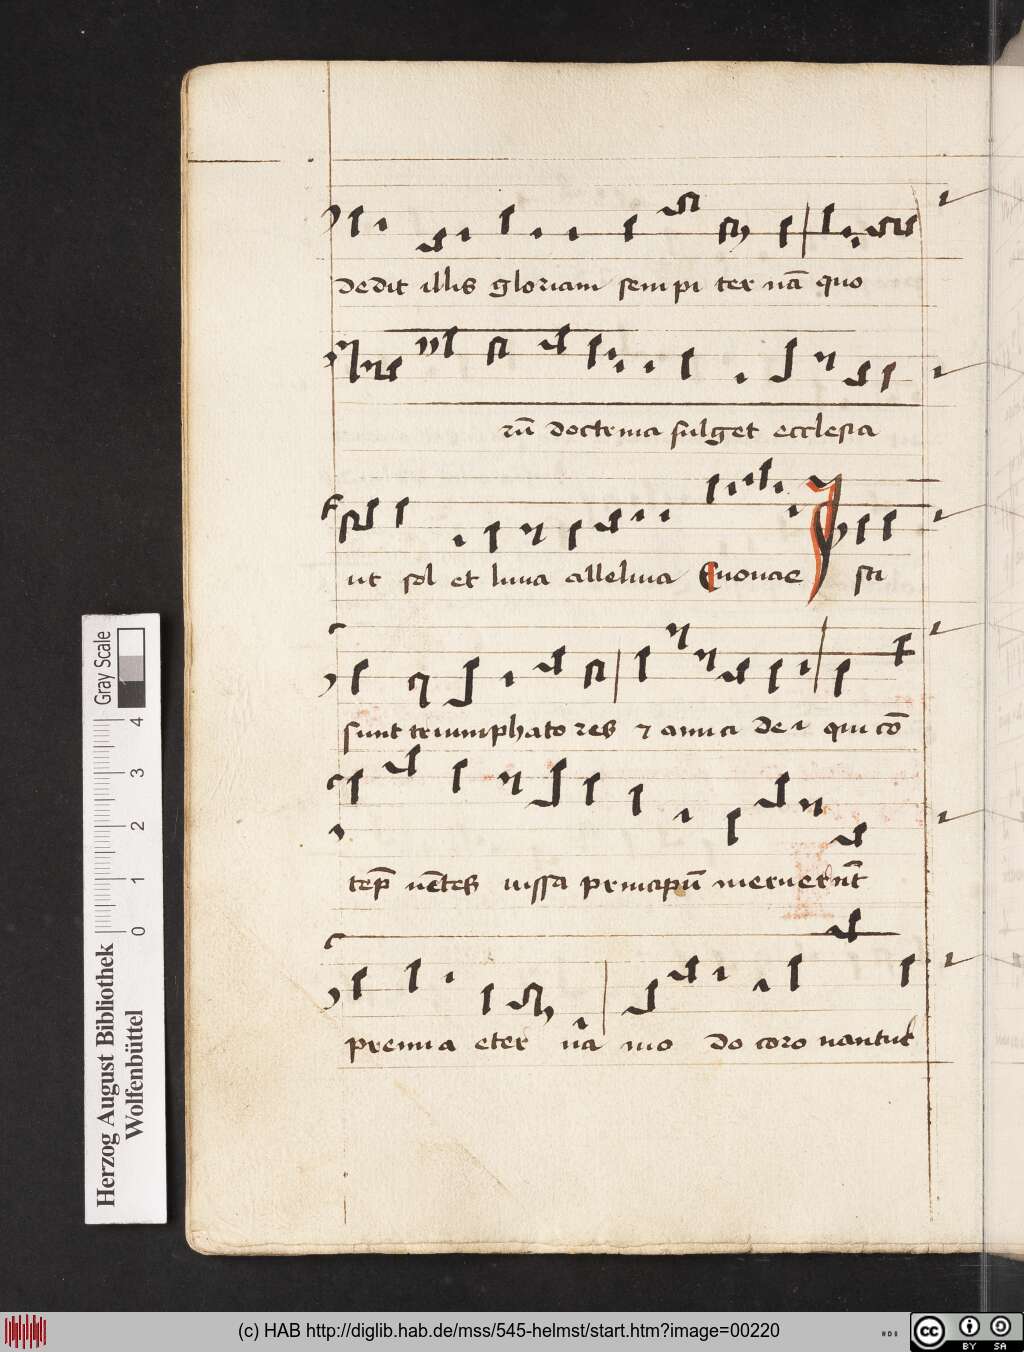 dedit illis gloriam sempi ter nā quo
rū doctrina fulget ecclesia
ut sol et luna alleluia Euouae Isti
sunt triumphato res ⁊ amici dei qui cō
tēp nētes iussa principū meruerūt
premia eter na mo do coro nantur
Gray Scale
4
3
2
1
0
Herzog August Bibliothek
Wolfenbüttel
(c) HAB http://diglib.hab.de/mss/545-helmst/start.htm?image=00220
cc BY SA